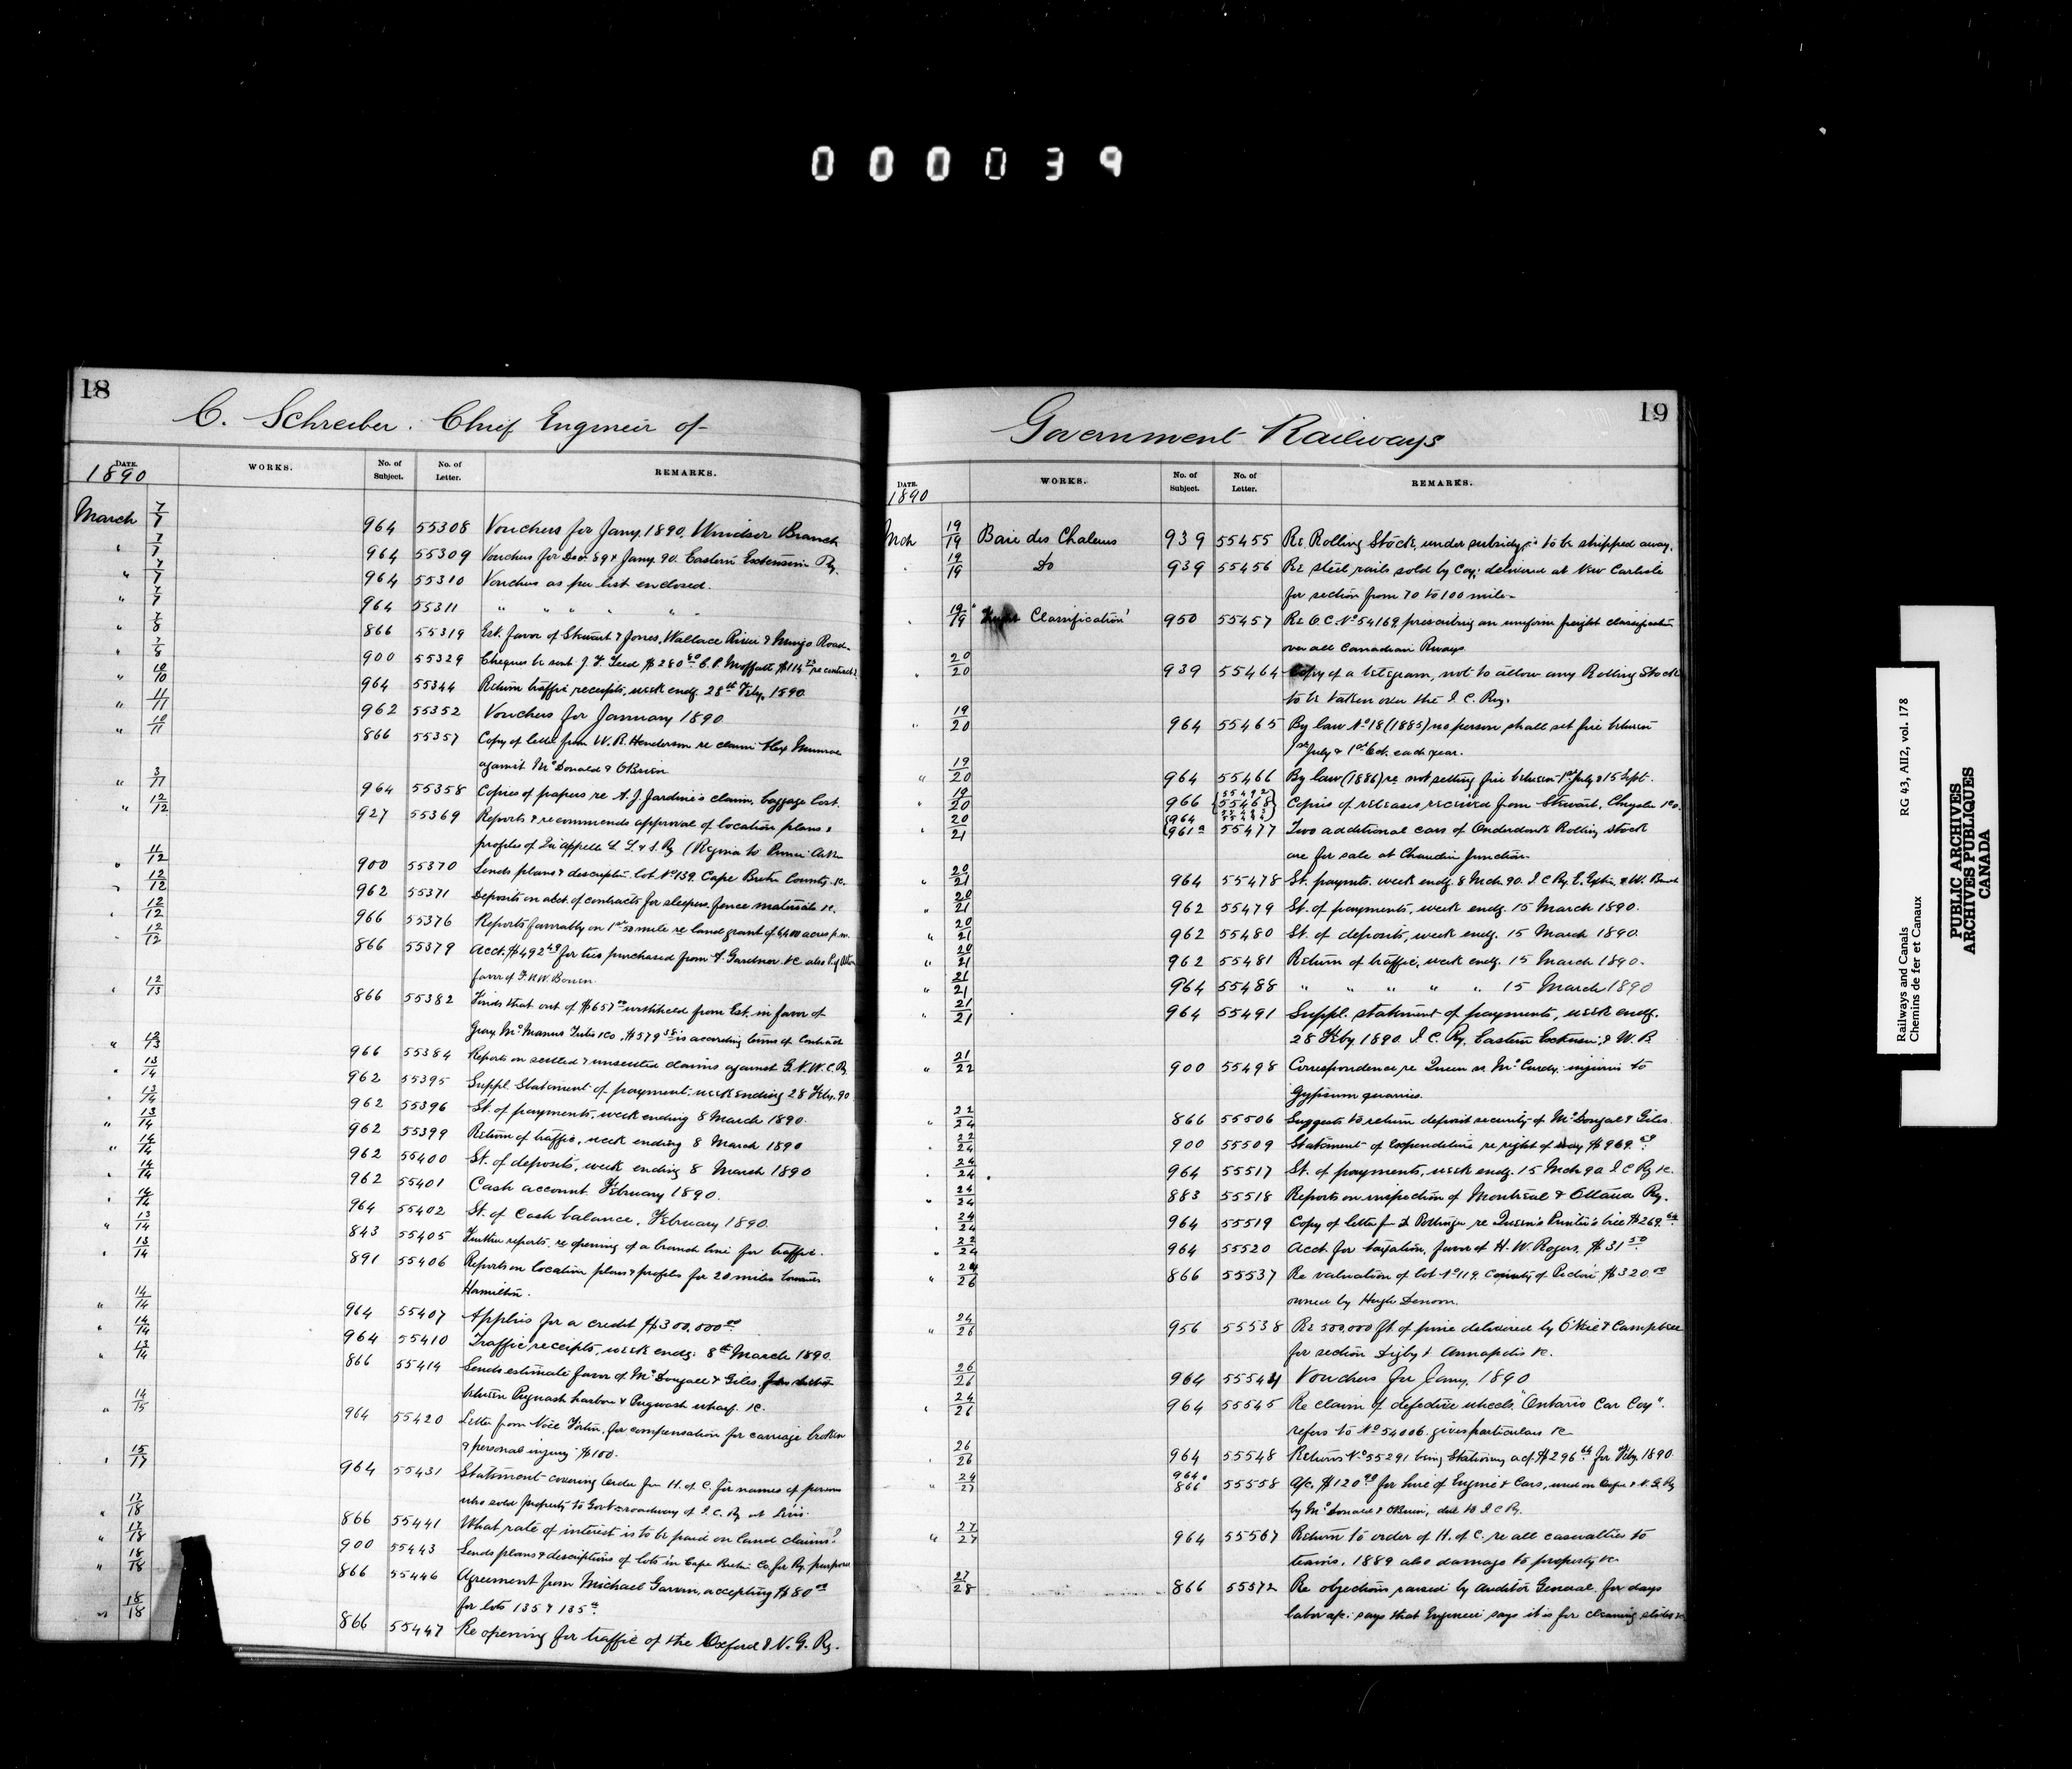 000039
18
C. Schreiber. Chief Engineer of
DATE. WORKS. No. of Subject. No. of Letter. REMARKS.
1890
March 7/7 964 55308 Vouchers for Jany. 1890. Windsor Branch
" 7/7 964 55309 Vouchers for Decr. 89 & Jany. 90. Eastern Extension Ry.
" 7/7 964 55310 Vouchers as per list enclosed.
" 7/7 964 55311 " " " " "
" 7/8 866 55319 Est. favor of Stewart & Jones, Wallace River & Mungo Road.
" 7/8 900 55329 Cheques be sent J. F. Teed $280.80 C. P. Moffatt $114 re contracts
" 10/10 964 55344 Return traffic receipts, week endg. 28th Feby. 1890.
" 11/11 962 55352 Vouchers for January 1890.
" 10/11 866 55357 Copy of letter from W. R. Henderson re claim Alex Munroe
against McDonald & OBrien
" 3/11 964 55358 Copies of papers re A. J. Jardine's claim, baggage lost.
" 12/12 927 55369 Reports & recommends approval of location plans &
profiles of Qu'appelle L. L. & S. Ry (Regina to Prince Arthur
" 11/12 900 55370 Sends plans & descriptn. lot No 139. Cape Breton County. &c.
" 12/12 962 55371 Deposits on acct. of contracts for sleepers, fence materials &c.
" 12/12 966 55376 Reports favorably on 1st 50 mile re land grant of 6400 acres p. m.
" 12/12 866 55379 Acct. $492.49 for ties purchased from A. Gardner &c also
favor of F. N. W. Bowen.
" 12/13 866 55382 Finds that out of $657.00 withheld from Est. in favor of
Gray, McManus Tutis & Co, $579.38 is according terms of Contract
" 12/13 966 55384 Reports on settled & unsettled claims against G. N. W. C. Ry
" 13/14 962 55395 Suppl. Statement of payment, week ending 28 Feby. 90
" 13/14 962 55396 St. of payments, week ending 8 March 1890.
" 13/14 962 55399 Return of traffic, week ending 8 March 1890
" 14/14 962 55400 St. of deposits, week ending 8 March 1890
" 14/14 962 55401 Cash account February 1890.
" 14/14 964 55402 St. of Cash balance, February 1890.
" 13/14 843 55405 Further reports, re opening of a branch line for traffic.
" 13/14 891 55406 Reports on location plans & profiles for 20 miles towards
Hamilton.
" 14/14 964 55407 Applies for a credit $300,000.00
" 14/14 964 55410 Traffic receipts, week endg. 8th March 1890.
" 13/14 866 55414 Sends estimate favor of McDougall & Giles,
between Pugwash harbor & Pugwash wharf. &c.
" 14/15 964 55420 Letter from Noël Fortin, for compensation for carriage broken
& personal injury $100.
" 15/17 964 55431 Statement covering Order fm H. of C. for names of persons
who sold property to Govt. roadway of I. C. Ry at Lévis.
" 17/18 866 55441 What rate of interest is to be paid on land claims?
" 17/18 900 55443 Sends plans & descriptions of lots in Cape Breton Co. for Ry. purposes
" 18/18 866 55446 Agreement from Michael Garvin, accepting $80.00
for lots 135 & 135a.
" 18/18 866 55447 Re opening for traffic of the Oxford & N. G. Ry.
19
Government Railways
DATE. WORKS. No. of Subject. No. of Letter. REMARKS.
1890
Mch 19/19 Baie des Chaleurs 939 55455 Re Rolling Stock, under subsidy, is to be shipped away.
" 19/19 Do 939 55456 Re steel rails sold by Coy: delivered at New Carlisle
for section from 70 to 100 mile
" 19/19 "Freight Classification" 950 55457 Re O C No 54169, prescribing an uniform freight classification
over all Canadian Rways
" 20/20 939 55464 Copy of a telegram, not to allow any Rolling Stock
to be taken over the I. C. Ry.
" 19/20 964 55465 By law No 18 (1885) no person shall set fire between
1st July & 1st Oct. each year.
" 19/20 964 55466 By law (1886) re not setting fire between 1st July & 15 Sept.
" 19/20 966 55468 Copies of releases received from Stewart, Chrysler & Co.
" 20/21 964 961a 55477 Two additional cars of Onderdonk Rolling stock
are for sale at Chaudiere Junction.
" 20/21 964 55478 St. paymts. week endg. 8 Mch. 90. I. C Ry. E. Extn. & W. Branch
" 20/21 962 55479 St. of payments, week endg. 15 March 1890.
" 20/21 962 55480 St. of deposits, week endg. 15 March 1890.
" 20/21 962 55481 Return of traffic, week endg. 15 March 1890.
" 21/21 964 55488 " " " " " 15 March 1890
" 21/21 964 55491 Suppl. statement of payments, week endg.
28 Feby. 1890. I. C. Ry, Eastern Extension, & W. B.
" 21/22 900 55498 Correspondence, re Queen vs McCurdy. injuries to
Gypsum quarries.
" 22/24 866 55506 Suggests to return deposit security of McDougall & Giles.
" 22/24 900 55509 Statement of expenditure re right of way $969.69
" 24/24 964 55517 St. of payments, week endg. 15 Mch 90. I C Ry &c.
" 24/24 883 55518 Reports on inspection of Montreal & Ottawa Ry.
" 24/24 964 55519 Copy of letter fm D Pottinger re Queen's Printer's bill $269.64
" 22/24 964 55520 Acct. for taxation, favor of H. W. Rogers, $31.50
" 24/26 866 55537 Re valuation of lot No 119. County of Pictou $320.00
owned by Hugh Denoon.
" 24/26 956 55538 Re 500,000 ft of pine delivered by O'Kie & Campbell
for section Digby & Annapolis &c.
26/26 964 55544 Vouchers for Jany. 1890
" 24/26 964 55545 Re claim of defective wheels "Ontario Car Coy".
refers to No 54006. gives particulars &c
" 26/26 964 55548 Returns No 55291 being Stationery acct. $296.64 for Feby. 1890
" 24/27 964 866 55558 a/c. $120.90 for hire of Engine & Cars, used on Oxford & N. G. Ry
by McDonald & OBrien, due to I. C Ry.
" 27/27 964 55567 Return to order of H. of C. re all casualties to
trains, 1889 also damage to property &c
27/28 866 55572 Re objections raised by Auditor General. for days
labor a/c: says that Engineer says it is for cleaning slides
Railways and Canals
Chemins de fer et Canaux
RG 43, AII2, vol. 178
PUBLIC ARCHIVES
ARCHIVES PUBLIQUES
CANADA